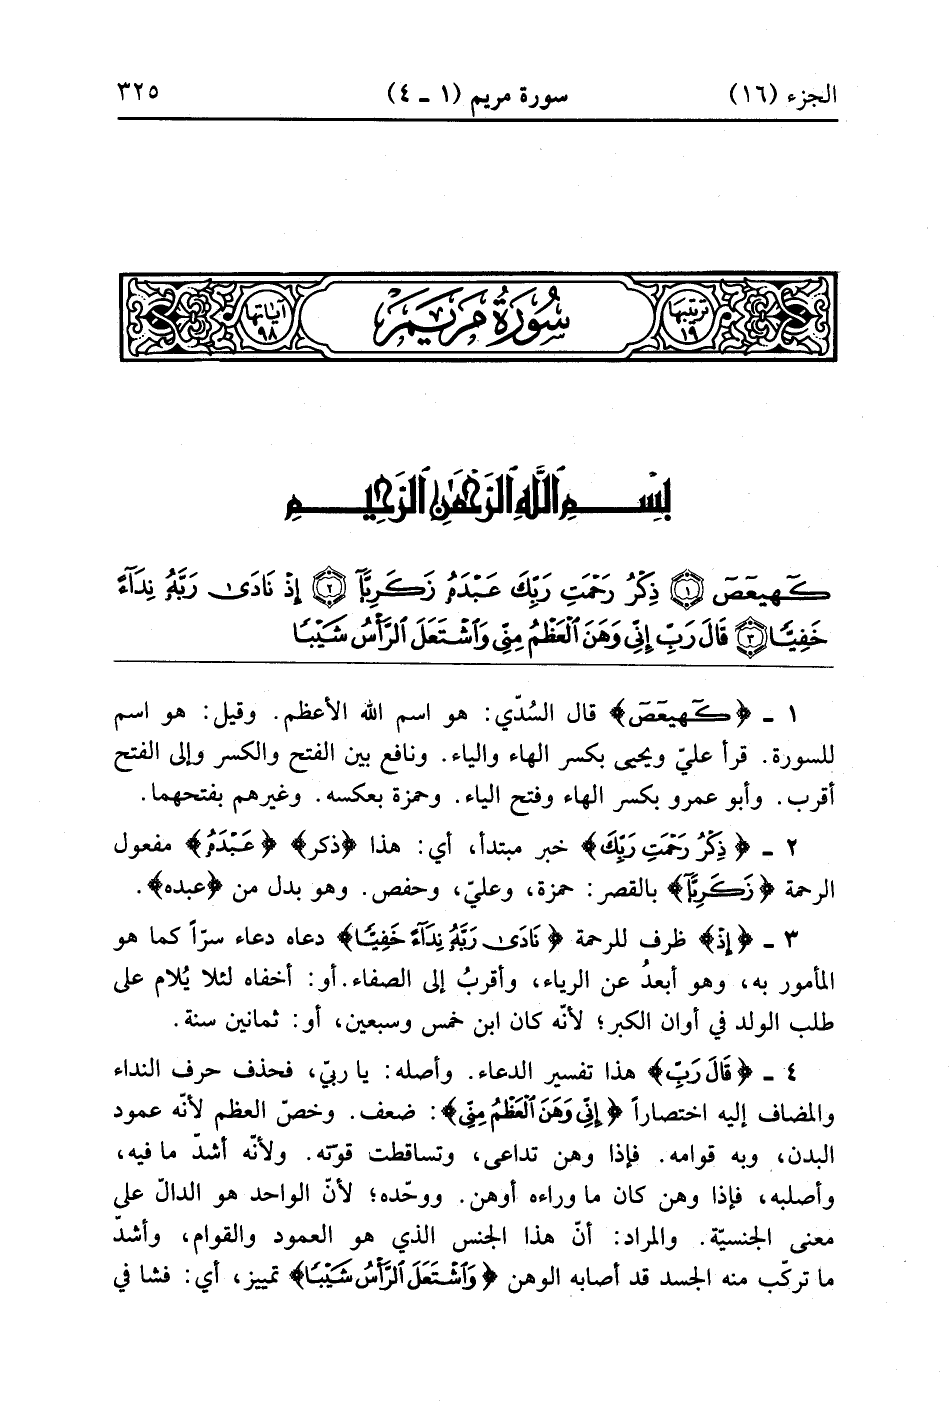 الجزء (١٦) سورة مريم (١ ـ ٤) ٣٢٥
ترتيبها ١٩ سُورَةُ مَريَم آياتها ٩٨
بِسْمِ اللَّهِ الرَّحْمَٰنِ الرَّحِيمِ
كٓهيعٓصٓ ﴿١﴾ ذِكْرُ رَحْمَتِ رَبِّكَ عَبْدَهُۥ زَكَرِيَّآ ﴿٢﴾ إِذْ نَادَىٰ رَبَّهُۥ نِدَآءً
خَفِيًّا ﴿٣﴾ قَالَ رَبِّ إِنِّى وَهَنَ ٱلْعَظْمُ مِنِّى وَٱشْتَعَلَ ٱلرَّأْسُ شَيْبًا
١ ـ ﴿كٓهيعٓصٓ﴾ قال السُدّي: هو اسم الله الأعظم. وقيل: هو اسم
للسورة. قرأ عليّ ويحيى بكسر الهاء والياء. ونافع بين الفتح والكسر وإلى الفتح
أقرب. وأبو عمرو بكسر الهاء وفتح الياء. وحمزة بعكسه. وغيرهم بفتحهما.
٢ ـ ﴿ذِكْرُ رَحْمَتِ رَبِّكَ﴾ خبر مبتدأ، أي: هذا ﴿ذكر﴾ ﴿عَبْدَهُۥ﴾ مفعول
الرحمة ﴿زَكَرِيَّآ﴾ بالقصر: حمزة، وعليّ، وحفص. وهو بدل من ﴿عبده﴾.
٣ ـ ﴿إِذْ﴾ ظرف للرحمة ﴿نَادَىٰ رَبَّهُۥ نِدَآءً خَفِيًّا﴾ دعاه دعاء سرّاً كما هو
المأمور به، وهو أبعدُ عن الرياء، وأقربُ إلى الصفاء. أو: أخفاه لئلا يُلام على
طلب الولد في أوان الكبر؛ لأنّه كان ابن خمس وسبعين، أو: ثمانين سنة.
٤ ـ ﴿قَالَ رَبِّ﴾ هذا تفسير الدعاء. وأصله: يا ربيّ، فحذف حرف النداء
والمضاف إليه اختصاراً ﴿إِنِّى وَهَنَ ٱلْعَظْمُ مِنِّى﴾: ضعف. وخصّ العظم لأنّه عمود
البدن، وبه قوامه. فإذا وهن تداعى، وتساقطت قوّته. ولأنّه أشدّ ما فيه،
وأصلبه، فإذا وهن كان ما وراءه أوهن. ووحّده؛ لأنّ الواحد هو الدالّ على
معنى الجنسيّة. والمراد: أنّ هذا الجنس الذي هو العمود والقوام، وأشدّ
ما تركّب منه الجسد قد أصابه الوهن ﴿وَٱشْتَعَلَ ٱلرَّأْسُ شَيْبًا﴾ تمييز، أي: فشا في